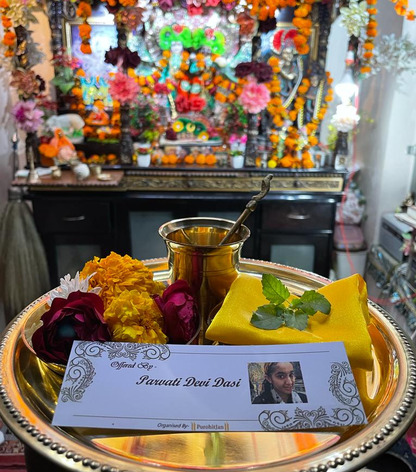 Offered By -
Parvati Devi Dasi
Organised By: || Panchitjan ||